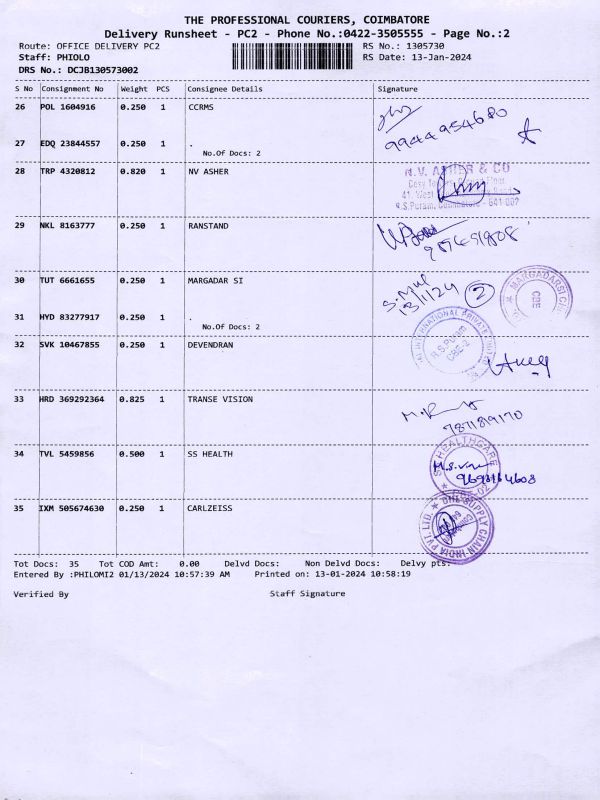 THE PROFESSIONAL COURIERS, COIMBATORE
Delivery Runsheet - PC2 - Phone No.:0422-3505555 - Page No.:2
Route: OFFICE DELIVERY PC2 RS No.: 1305730
Staff: PHIOLO RS Date: 13-Jan-2024
DRS No.: DCJB130573002
S No Consignment No Weight PCS Consignee Details Signature
26 POL 1604916 0.250 1 CCRMS
9944954680
27 EDQ 23844557 0.250 1 .
No.Of Docs: 2
28 TRP 4320812 0.820 1 NV ASHER
N.V. ASHER & CO
41, West
R.S.Puram, Coimbatore - 641 002
29 NKL 8163777 0.250 1 RANSTAND
30 TUT 6661655 0.250 1 MARGADAR SI
13/1/24 2
MARGADARSI
CBE
31 HYD 83277917 0.250 1 .
No.Of Docs: 2
INTERNATIONAL PRIVATE
R.S.Puram
CBE-2
32 SVK 10467855 0.250 1 DEVENDRAN
33 HRD 369292364 0.825 1 TRANSE VISION
7871819170
34 TVL 5459856 0.500 1 SS HEALTH
HEALTHCARE
35 IXM 505674630 0.250 1 CARLZEISS
SUPPLY CHAIN INDIA PVT. LTD.
Tot Docs: 35 Tot COD Amt: 0.00 Delvd Docs: Non Delvd Docs: Delvy pts:
Entered By :PHILOMI2 01/13/2024 10:57:39 AM Printed on: 13-01-2024 10:58:19
Verified By Staff Signature